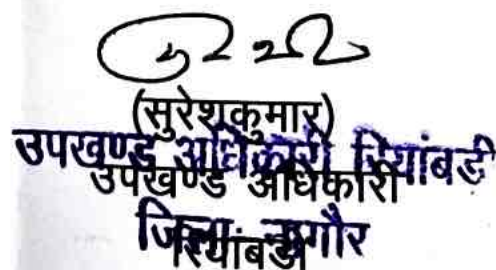 (सुरेशकुमार)
उपखण्ड अधिकारी रियांबडी
उपखण्ड अधिकारी
जिला नागौर
रियांबडी